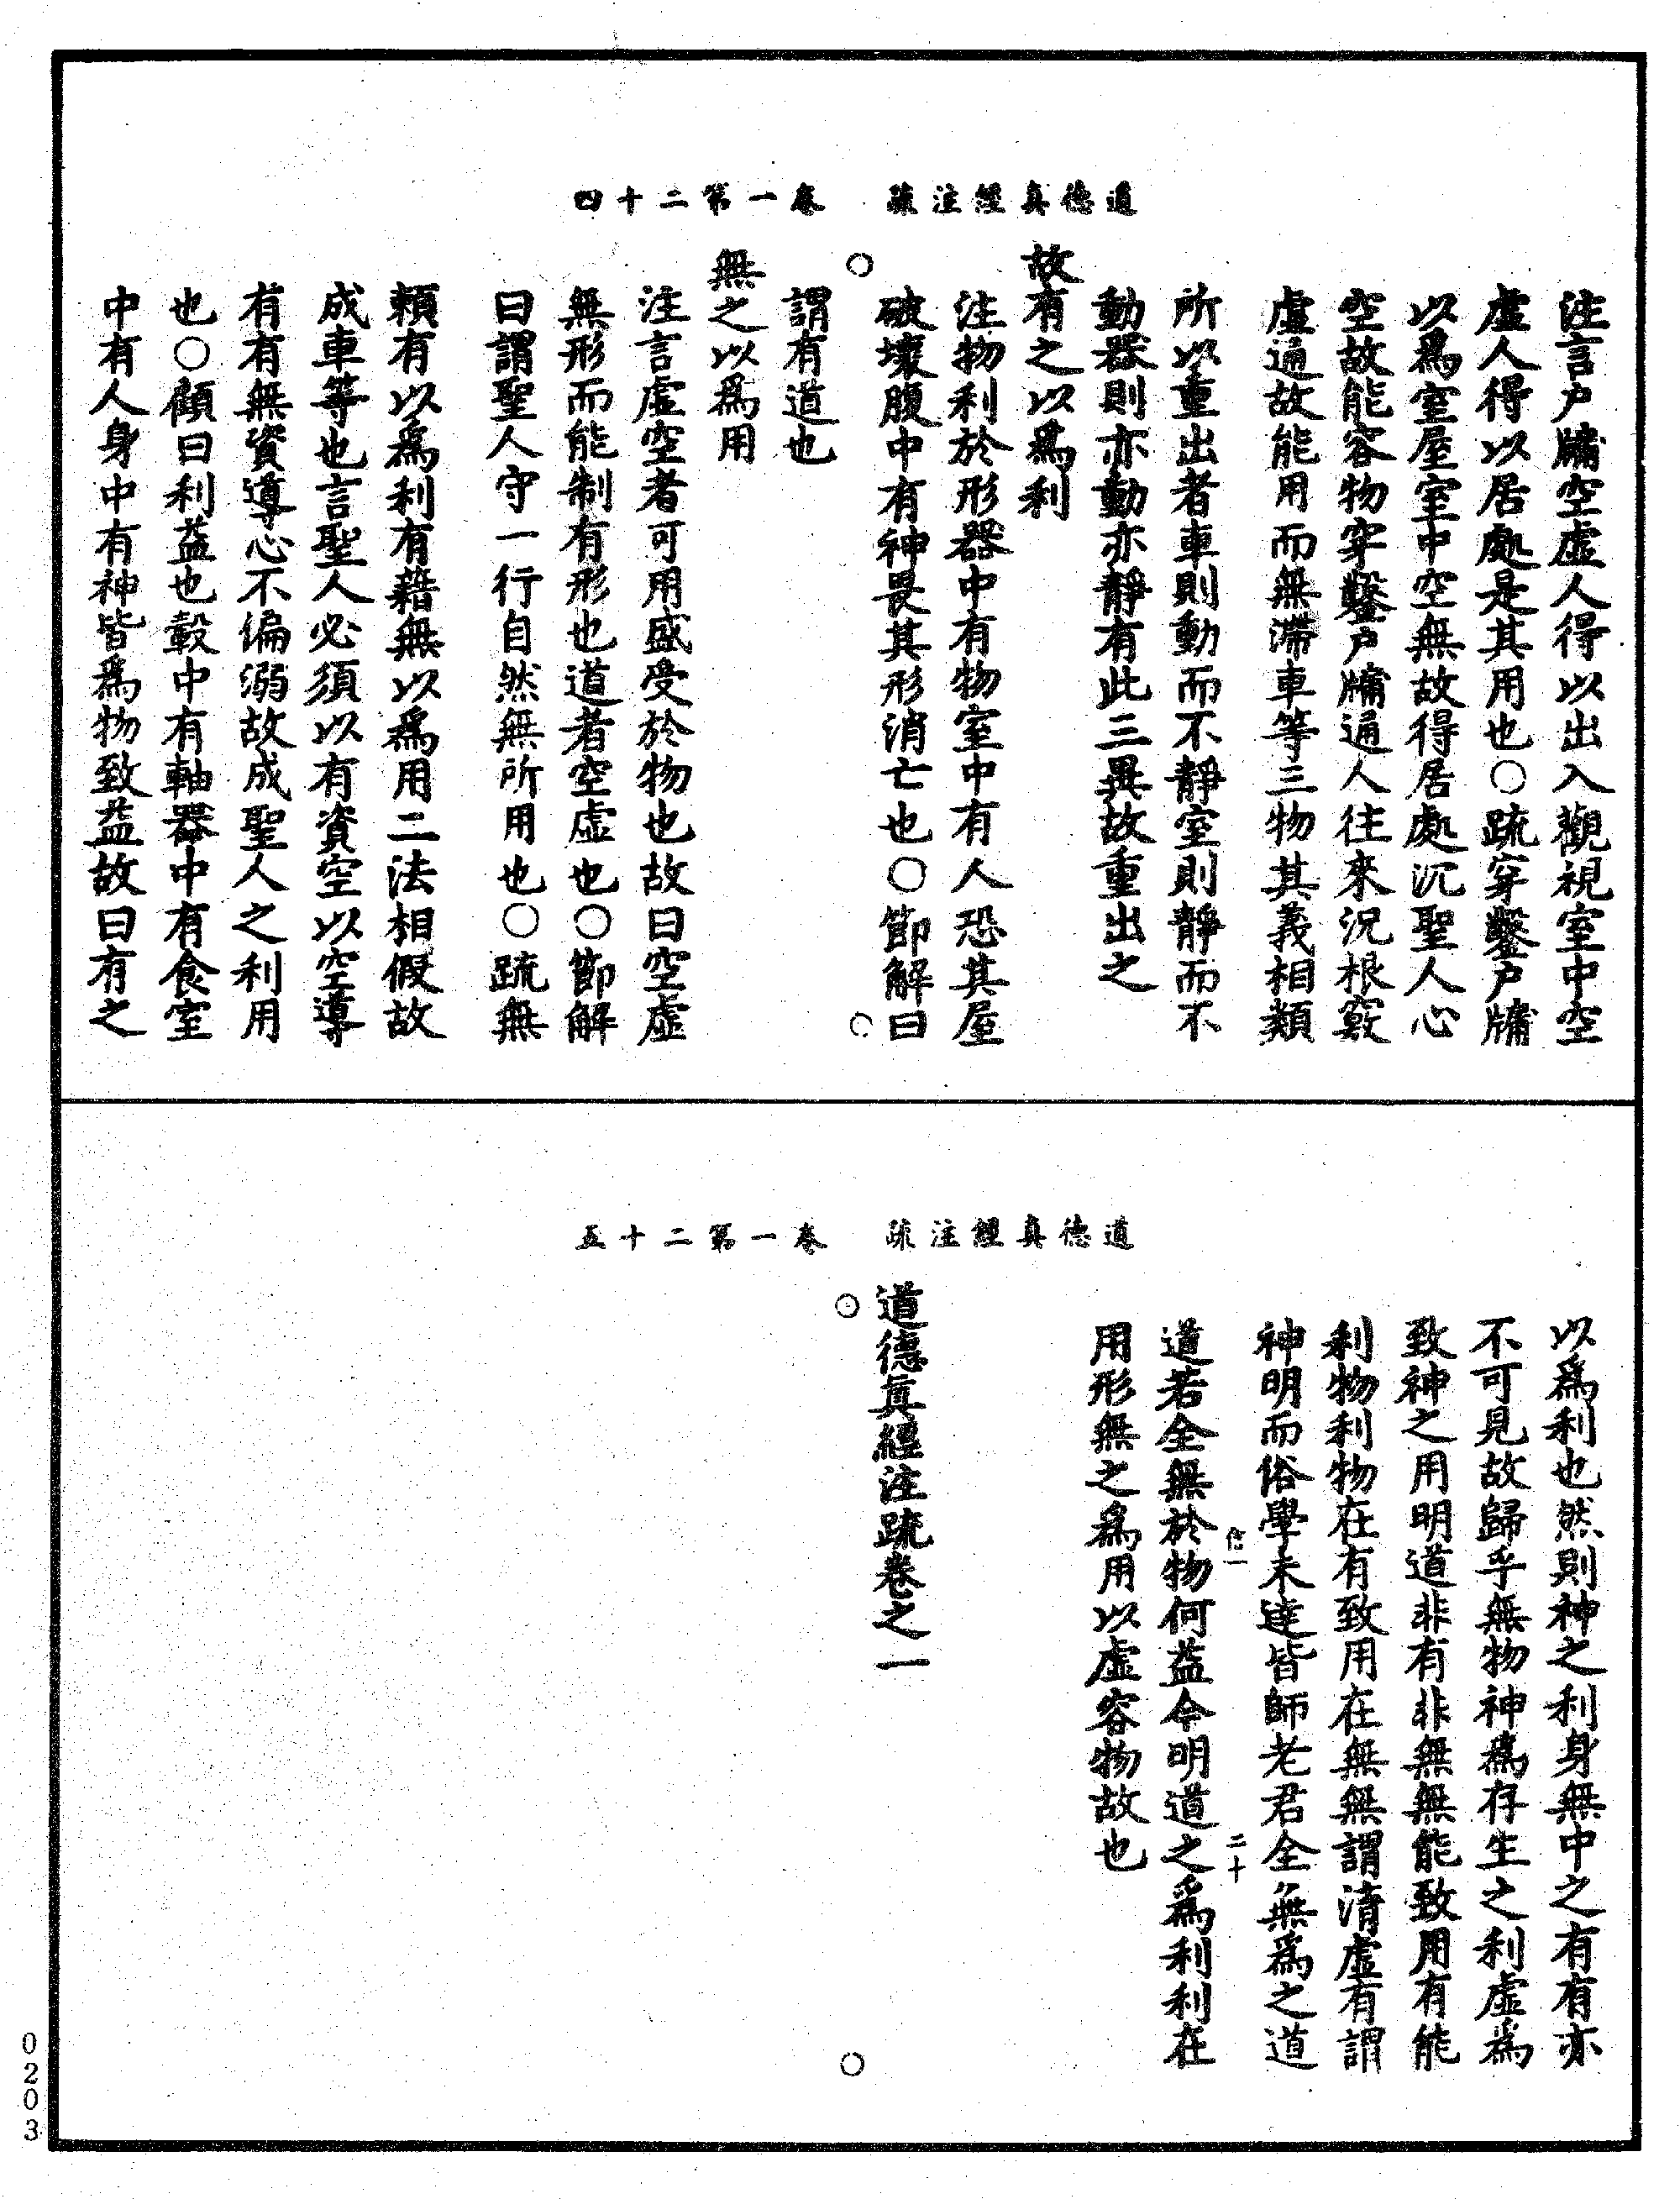 道德真經注疏　卷一第二十四
注言戶牖空虛人得以出入觀視室中空
虛人得以居處是其用也○疏穿鑿戶牖
以爲室屋室中空無故得居處況聖人心
空故能容物穿鑿戶牖通人往來況根竅
虛通故能用而無滯車等三物其義相類
所以重出者車則動而不靜室則靜而不
動器則亦動亦靜有此三異故重出之
故有之以爲利
注物利於形器中有物室中有人恐其屋
破壞腹中有神畏其形消亡也○節解曰
謂有道也
無之以爲用
注言虛空者可用盛受於物也故曰空虛
無形而能制有形也道者空虛也○節解
曰謂聖人守一行自然無所用也○疏無
賴有以爲利有藉無以爲用二法相假故
成車等也言聖人必須以有資空以空導
有有無資導心不偏溺故成聖人之利用
也○顧曰利益也轂中有軸器中有食室
中有人身中有神皆爲物致益故曰有之
道德真經注疏　卷一第二十五
以爲利也然則神之利身無中之有有亦
不可見故歸乎無物神爲存生之利虛爲
致神之用明道非有非無無能致用有能
利物利物在有致用在無無謂清虛有謂
神明而俗學未達皆師老君全無爲之道
信一　二十
道若全無於物何益今明道之爲利利在
用形無之爲用以虛容物故也
道德真經注疏卷之一
0203